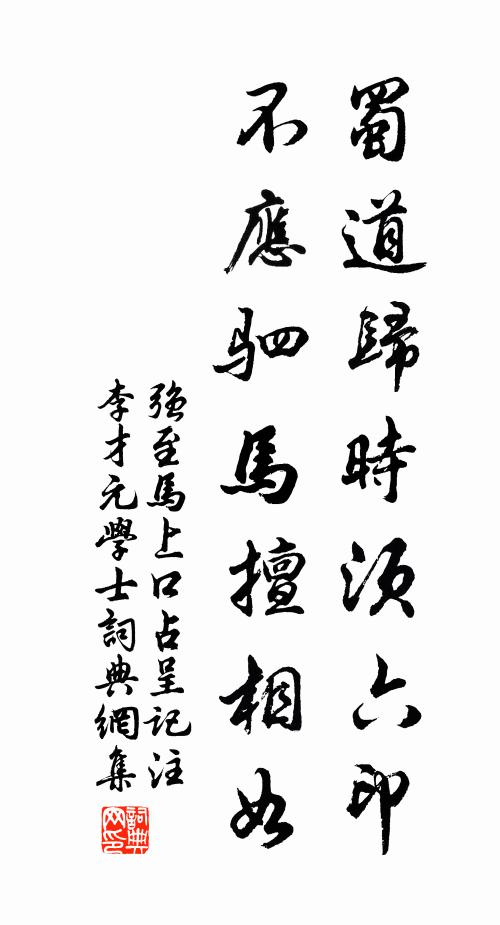 蜀道歸時須六印
不應駟馬擅相如
強至馬上口占呈記注
李才元學士詞典網集
詞典
网印